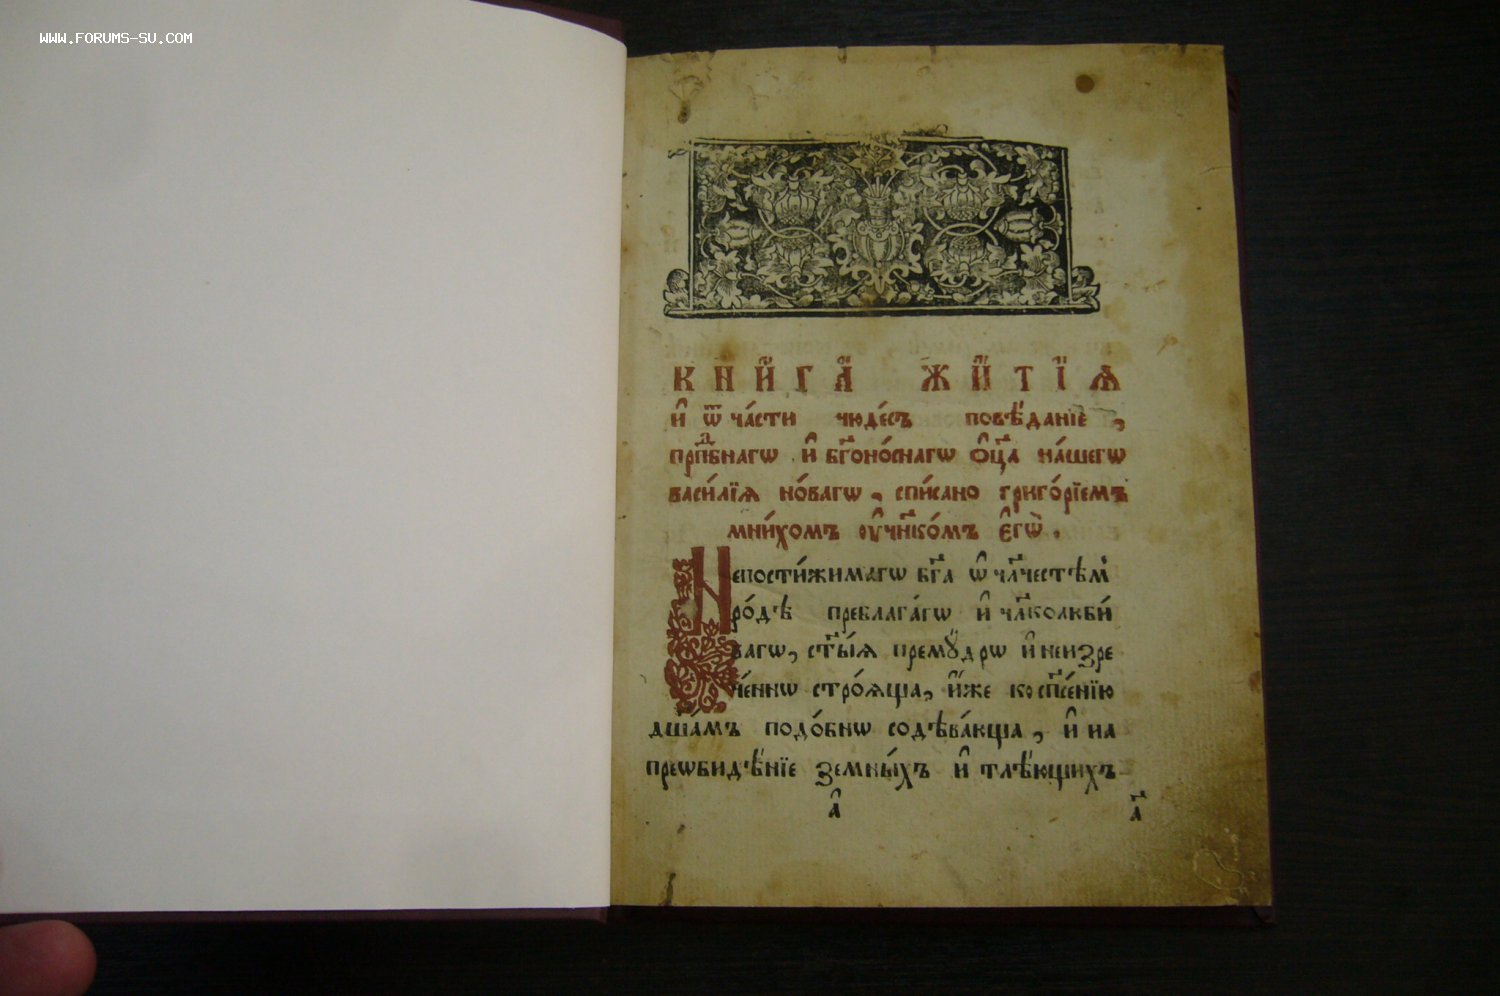 WWW.FORUMS-SU.COM
КНИ́ГА ЖИ́ТІѦ
и҆ ѿ ча́сти чюде́съ повѣ́данїе,
прпⷣбнагѡ и҆ бг҃оно́снагѡ ѻ҆ц҃а на́шегѡ
васи́лїѧ но́вагѡ, спи́сано григо́рїемъ
мни́хомъ ᲂу҆чн҃ко́мъ є҆гѡ̀.
Непости́жимагѡ бг҃а ѡ҆ чл҃честѣм
ро́дѣ преблага́гѡ и҆ чл҃колюби́
вагѡ, ст҃ы́ѧ премꙋ́дрѡ и҆ неизре
че́ннѡ стро́ѧща, и҆́же ко сп҃се́нїю
дш҃а́мъ подо́бнѡ содѣва́юща, и҆ на
преѡбидѣ́нїе земны́хъ и҆ тлѣ́ющихъ
а҆
а҃